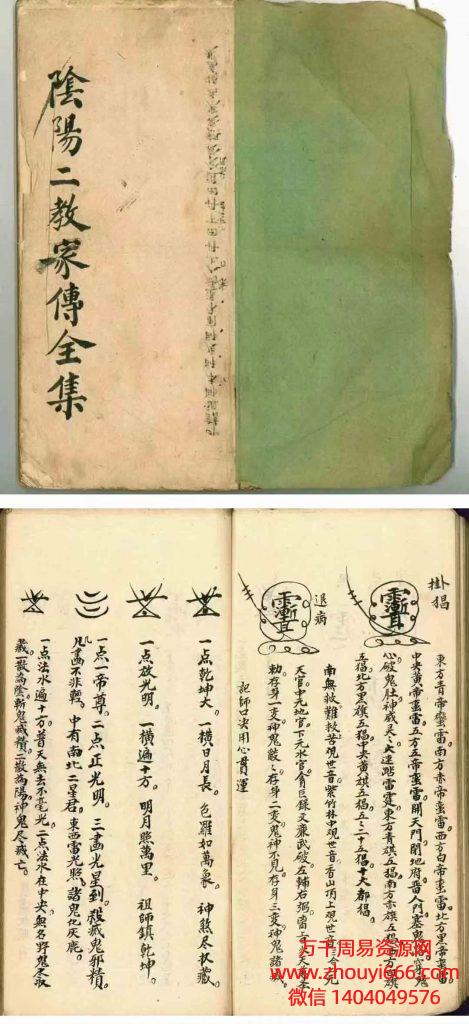 陰陽二教家傳全集
掛猖
東方青帝蛮雷南方赤帝蛮雷西方白帝蛮雷北方黑帝蛮雷
中央黄帝蛮雷五方五帝蛮雷開天門閉地府留人門塞鬼路穿鬼
心破鬼肚神威灵灵火速踏雷霆東方青旗五猖南方赤旗五猖西方白旗
五猖北方黑旗五猖中央黄旗五猖五五二十五猖十大都猖
退病
南無救難救苦观世音紫竹林中观世音香山頂上观世音
天官中元地官下元水官貪巨録文廉武破左輔右弼
勅存身一变神鬼散存身二变鬼神不見存身三变神鬼諸滅
祀師口决用心貫運
一点乾坤大一横日月長包羅如萬象神煞尽収藏
一点放光明一横遍十方明月照萬里祖師鎮乾坤
一点一帝尊二点正光明三畫光星到殺滅鬼邪精
凡畫不非輕中有南北二星君東西雷光照諸鬼化灰塵
一点法水遍十方普天無去不毫光二点法水在中央無名野鬼尽収
藏一散為陰斬鬼滅積二散為陽神鬼尽滅亡
万千周易资源网
www.zhouyi666.com
微信 1404049576